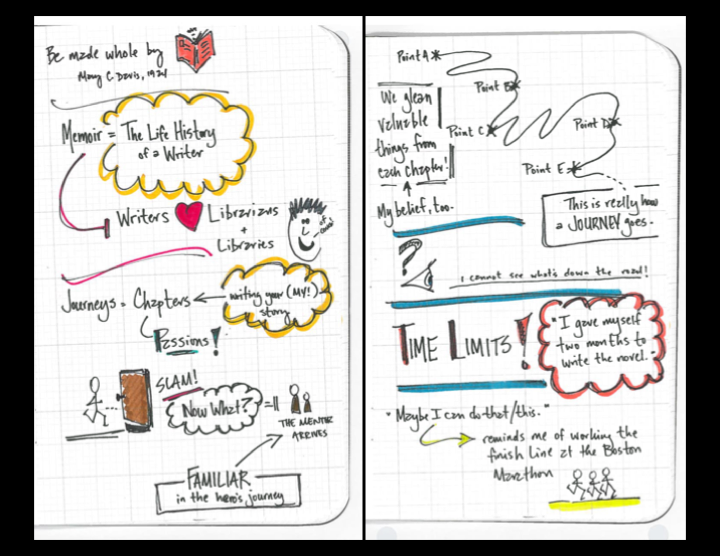 Be made whole by
Mary C. Davis, 1924
Memoir = The Life History
of a Writer
Writers
Librarians
+
Libraries
of course!
Journeys = Chapters
writing your (MY!)
story
Passions!
SLAM!
Now What?
THE MENTOR
ARRIVES
FAMILIAR
in the hero's journey
Point A
Point B
We glean
valuable
things from
each chapter!
Point C
Point D
Point E
My belief, too.
This is really how
a JOURNEY goes.
?
I cannot see what's down the road!
TIME LIMITS!
"I gave myself
two months to
write the novel."
"Maybe I can do that/this."
reminds me of working the
finish line at the Boston
Marathon